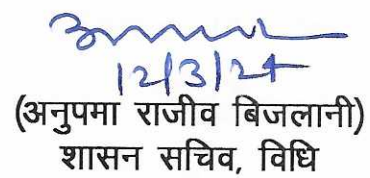 12/3/24
(अनुपमा राजीव बिजलानी)
शासन सचिव, विधि